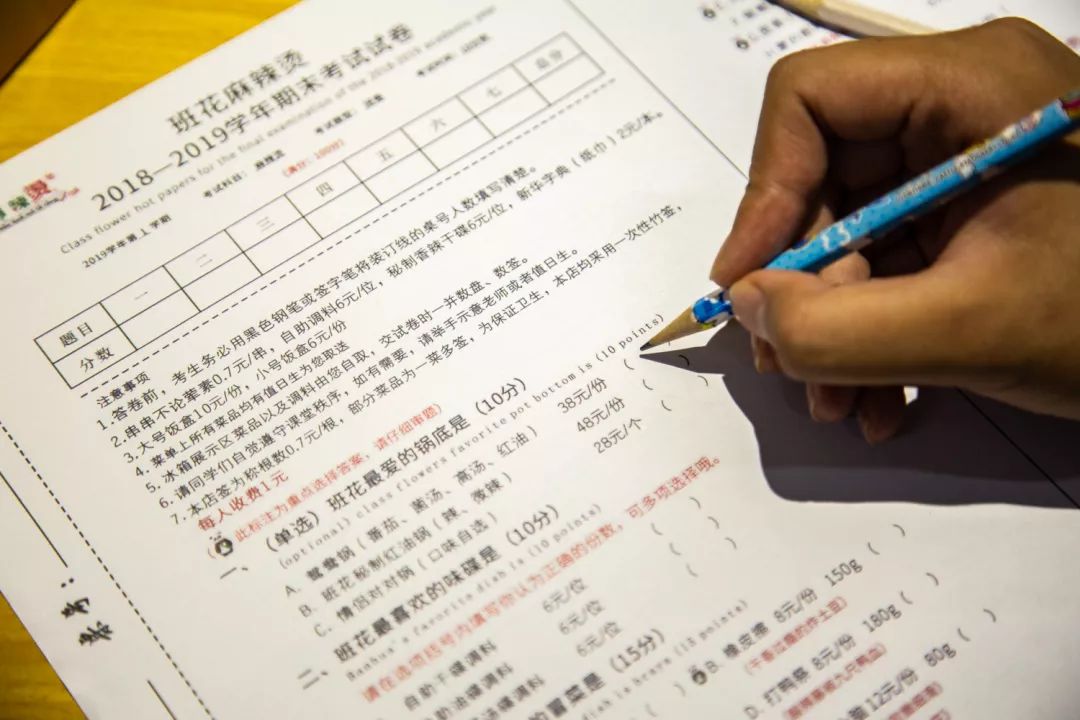 班花麻辣烫
2018—2019学年期末考试试卷
Class flower hot papers for the final examination of the 2018-2019 academic year
2019学年第上学期 考试科目：麻辣烫 考试题型：
(满分：100分)
题目 一 二 三 四 五 六 七 总分
分数
注意事项
1. 答卷前，考生务必用黑色钢笔或签字笔将装订线的桌号人数填写清楚。
2. 串串不论荤素0.7元/串，自助调料6元/位，秘制香辣干碟6元/位，新华字典（纸巾）2元/本。
3. 大号饭盒10元/份，小号饭盒6元/份
4. 菜单上所有菜品均有值日生为您取送
5. 冰箱展示区菜品以及调料由您自取，交试卷时一并数盘、数签。
6. 请同学们自觉遵守课堂秩序，如有需要，请举手示意老师或者值日生。
7. 本店签为称根数0.7元/根，部分菜品为一菜多签，为保证卫生，本店均采用一次性竹签，
每人收费1元
（此标注为重点选择答案，请仔细审题）
一、（单选）班花最爱的锅底是（10分）
(optional) class flowers favorite pot bottom is (10 points)
A. 鸳鸯锅（番茄、菌汤、高汤、红油） 38元/份 （ ）
B. 班花秘制红油锅（辣、微辣） 48元/份 （ ）
C. 情侣对对锅（口味自选） 28元/个 （ ）
二、班花最喜欢的味碟是（10分）
Banhua's favorite dish is (10 points)
请在选项括号内填写你认为正确的份数，可多项选择哦。
自助干碟调料 6元/位 （ ）
自助油碟调料 6元/位 （ ）
汤碟调料 6元/位 （ ）
的冒菜是（15分）
dish is brava (15 points)
B. 橡皮擦 8元/份 150g （ ）
D. 打鸭惨 8元/份 180g （ ）
12元/份 80g （ ）
考号：